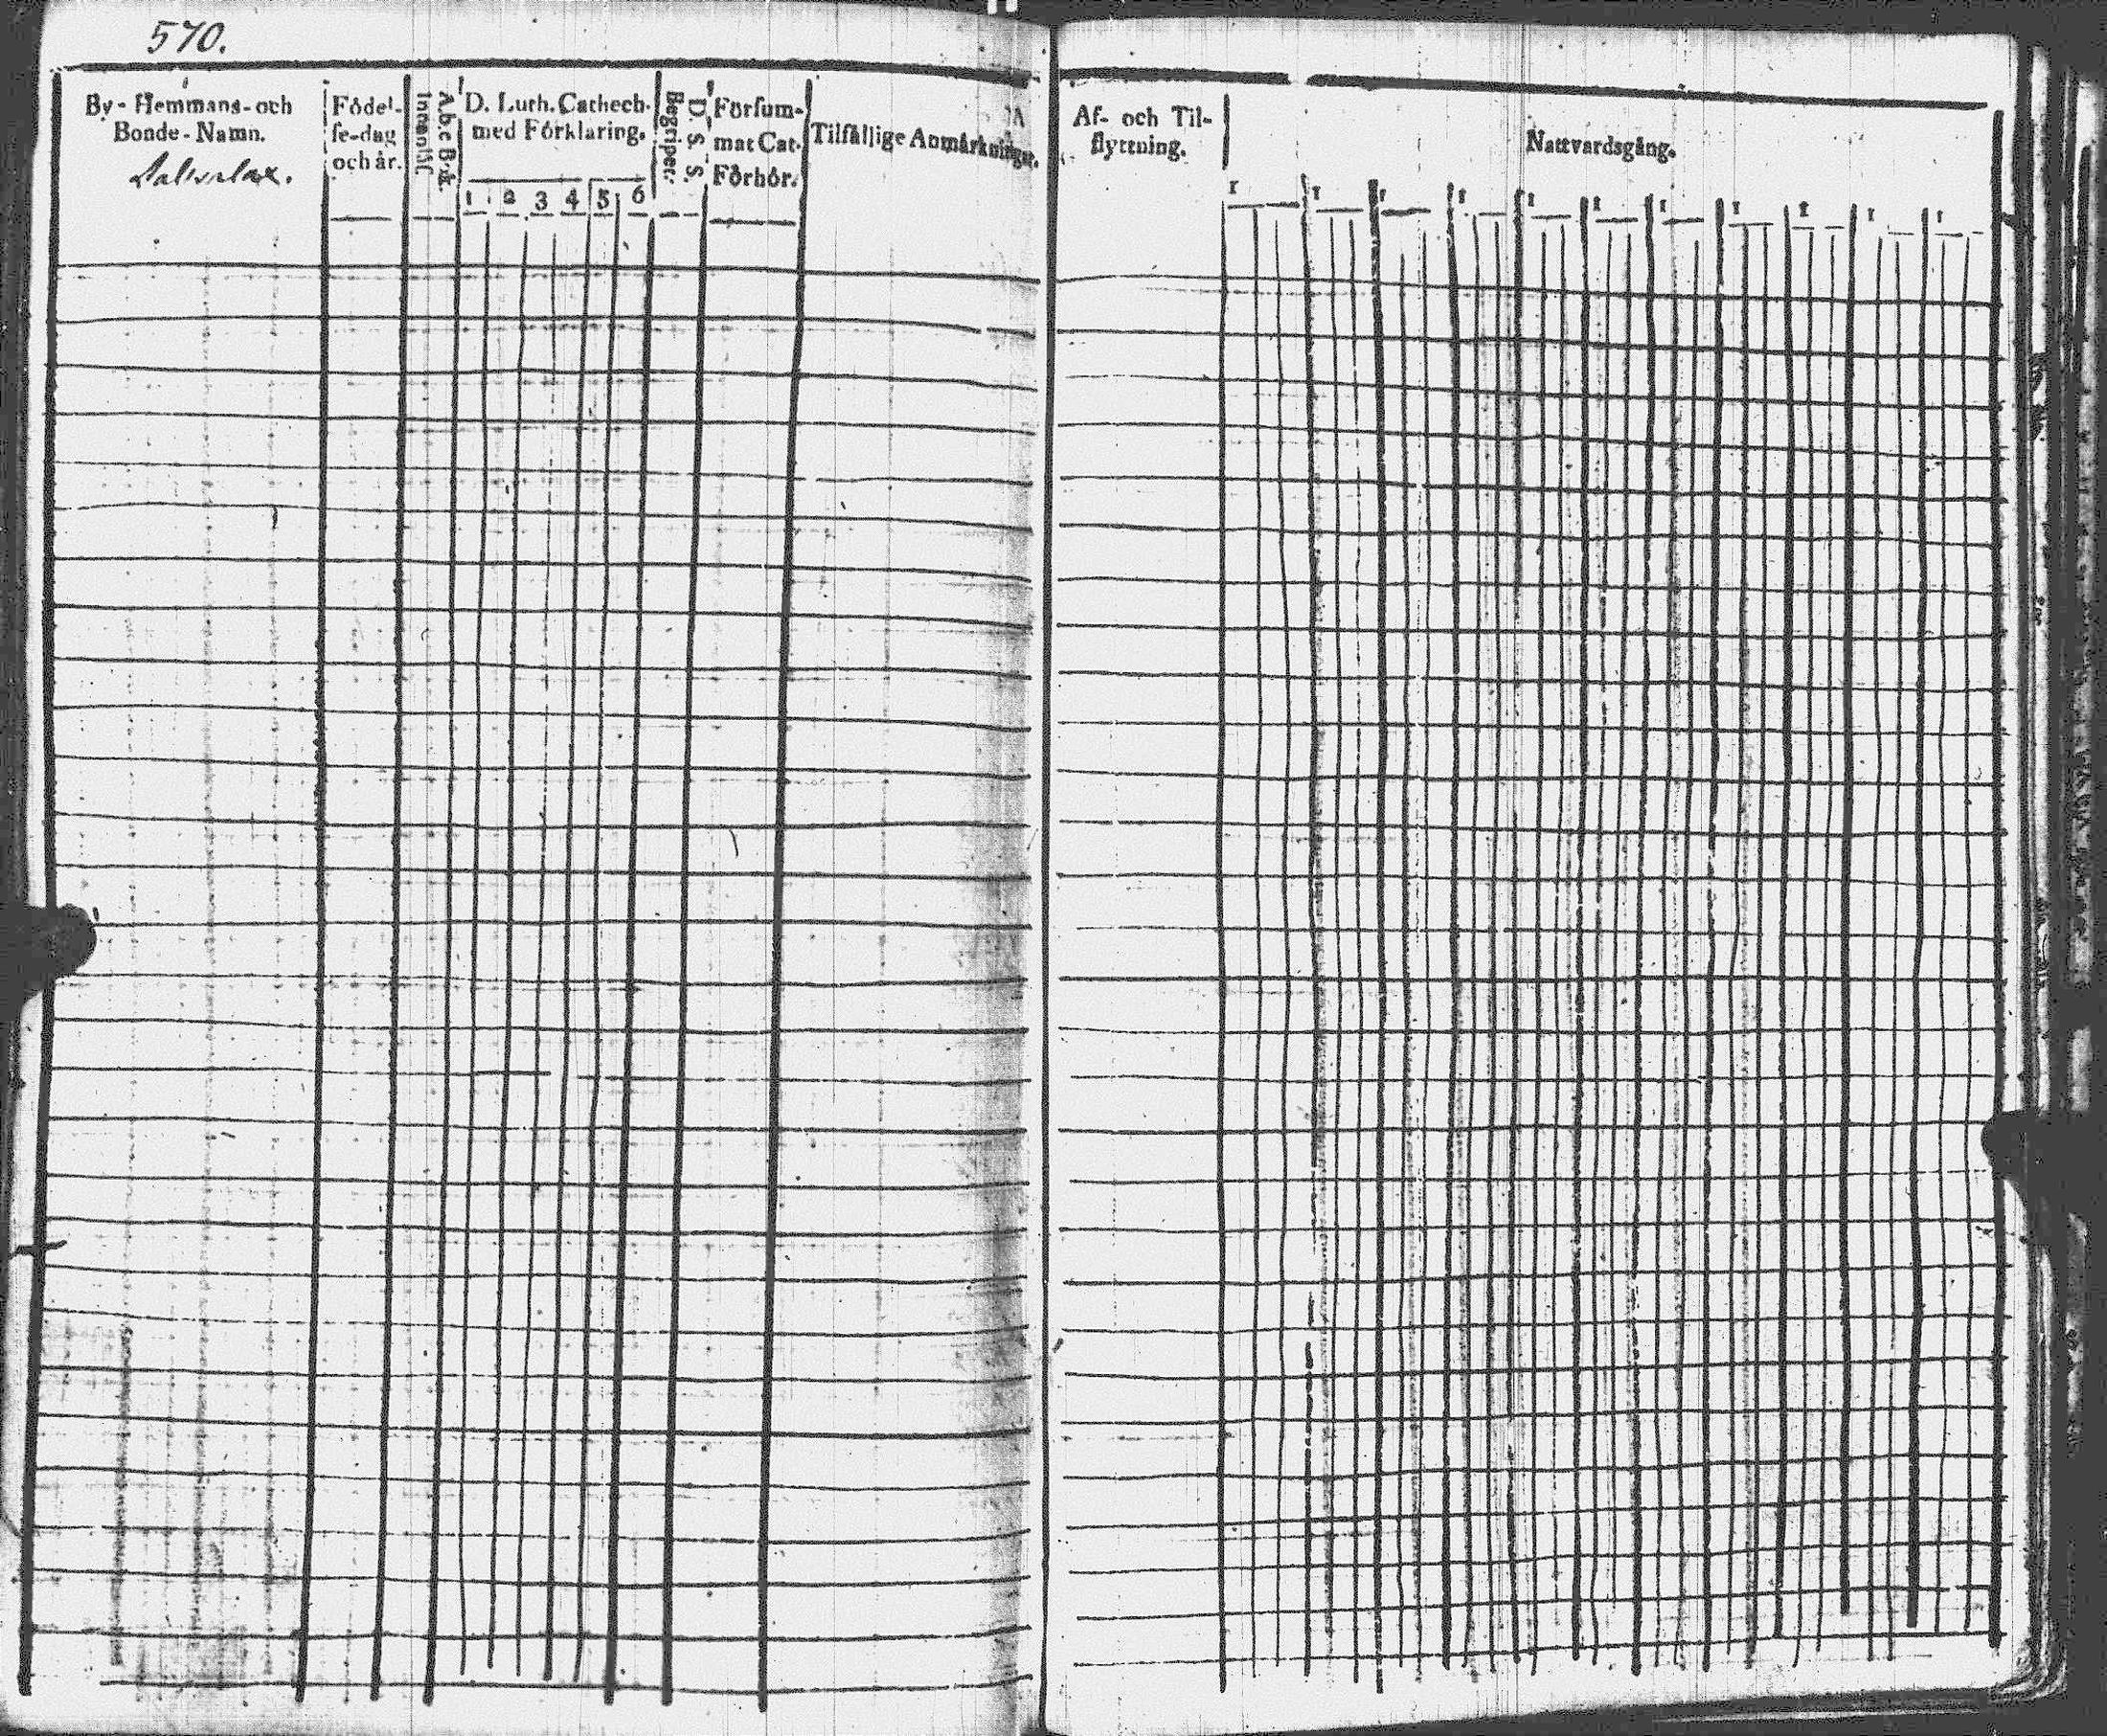 570.
By-Hemmans-och
Bonde-Namn.
Födel-
se-dag
och år.
A b c B-k.
Innanläs.
D. Luth. Cathech.
med Förklaring.
1 2 3 4 5 6
D. S. S.
Begriper.
Försum-
mat Cat.
Förhör.
Tilfällige Anmärkningar.
Af- och Til-
flyttning.
Nattvardsgång.
1 1 1 1 1 1 1 1 1 1 1